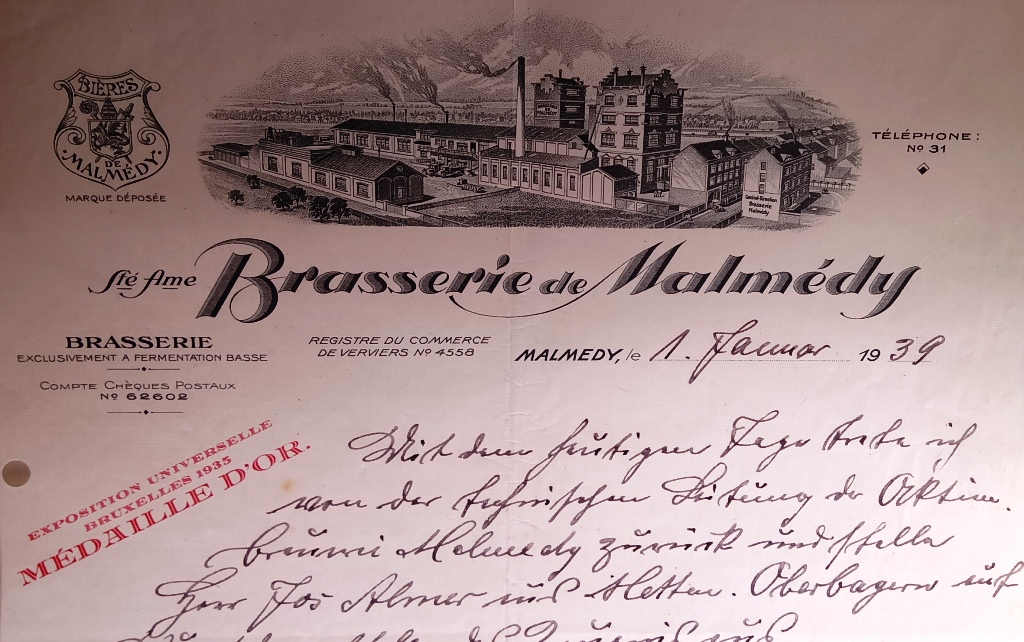 BIÈRES
DE
MALMÉDY
MARQUE DÉPOSÉE
TÉLÉPHONE:
Nº 31
Brasserie
Malmédy
Sté Ame Brasserie de Malmédy
BRASSERIE
EXCLUSIVEMENT A FERMENTATION BASSE
REGISTRE DU COMMERCE
DE VERVIERS Nº 4558
MALMEDY, le 1. Januar 1939
COMPTE CHÈQUES POSTAUX
Nº 62602
EXPOSITION UNIVERSELLE
BRUXELLES 1935
MÉDAILLE D'OR.
Mit dem heutigen Tage trete ich
von der technischen Leitung der Aktien
brauerei Malmedy zurück und stelle
Herr Jos Almer aus Oberbayern auf